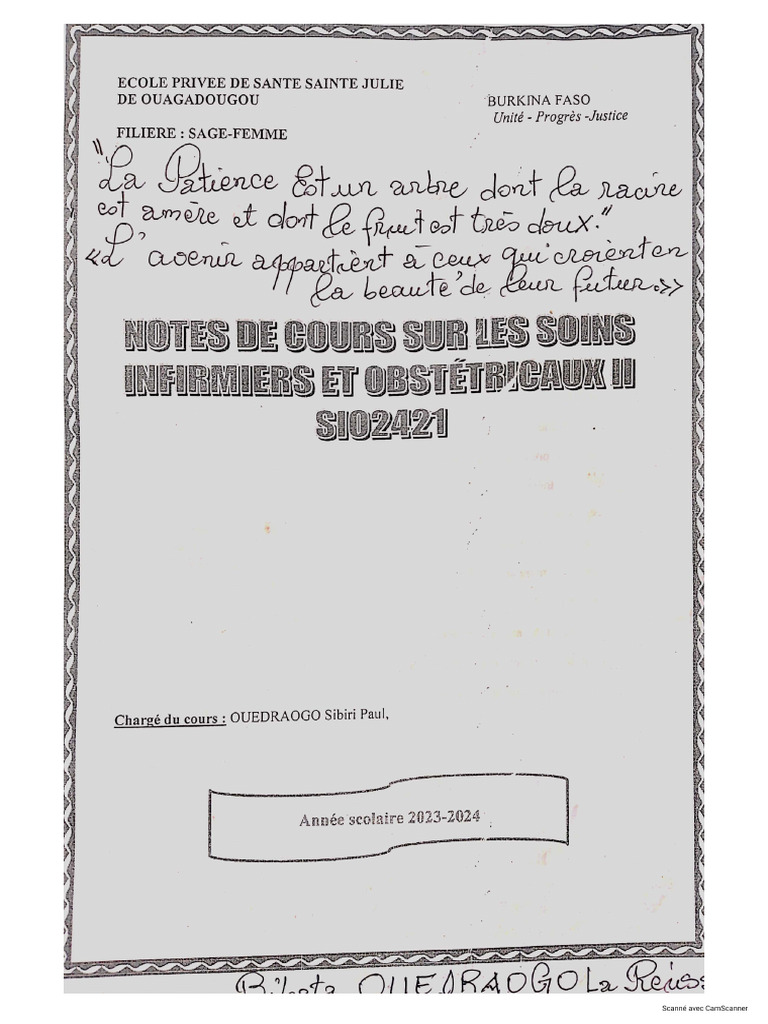 ECOLE PRIVEE DE SANTE SAINTE JULIE
DE OUAGADOUGOU
BURKINA FASO
Unité - Progrès -Justice
FILIERE : SAGE-FEMME
"La Patience Est un arbre dont la racine
est amère et dont le fruit est très doux."
«L'avenir appartient à ceux qui croient en
la beauté de leur futur.»
NOTES DE COURS SUR LES SOINS
INFIRMIERS ET OBSTÉTRICAUX II
SIO2421
Chargé du cours : OUEDRAOGO Sibiri Paul,
Année scolaire 2023-2024
OUEDRAOGO La
Scanné avec CamScanner